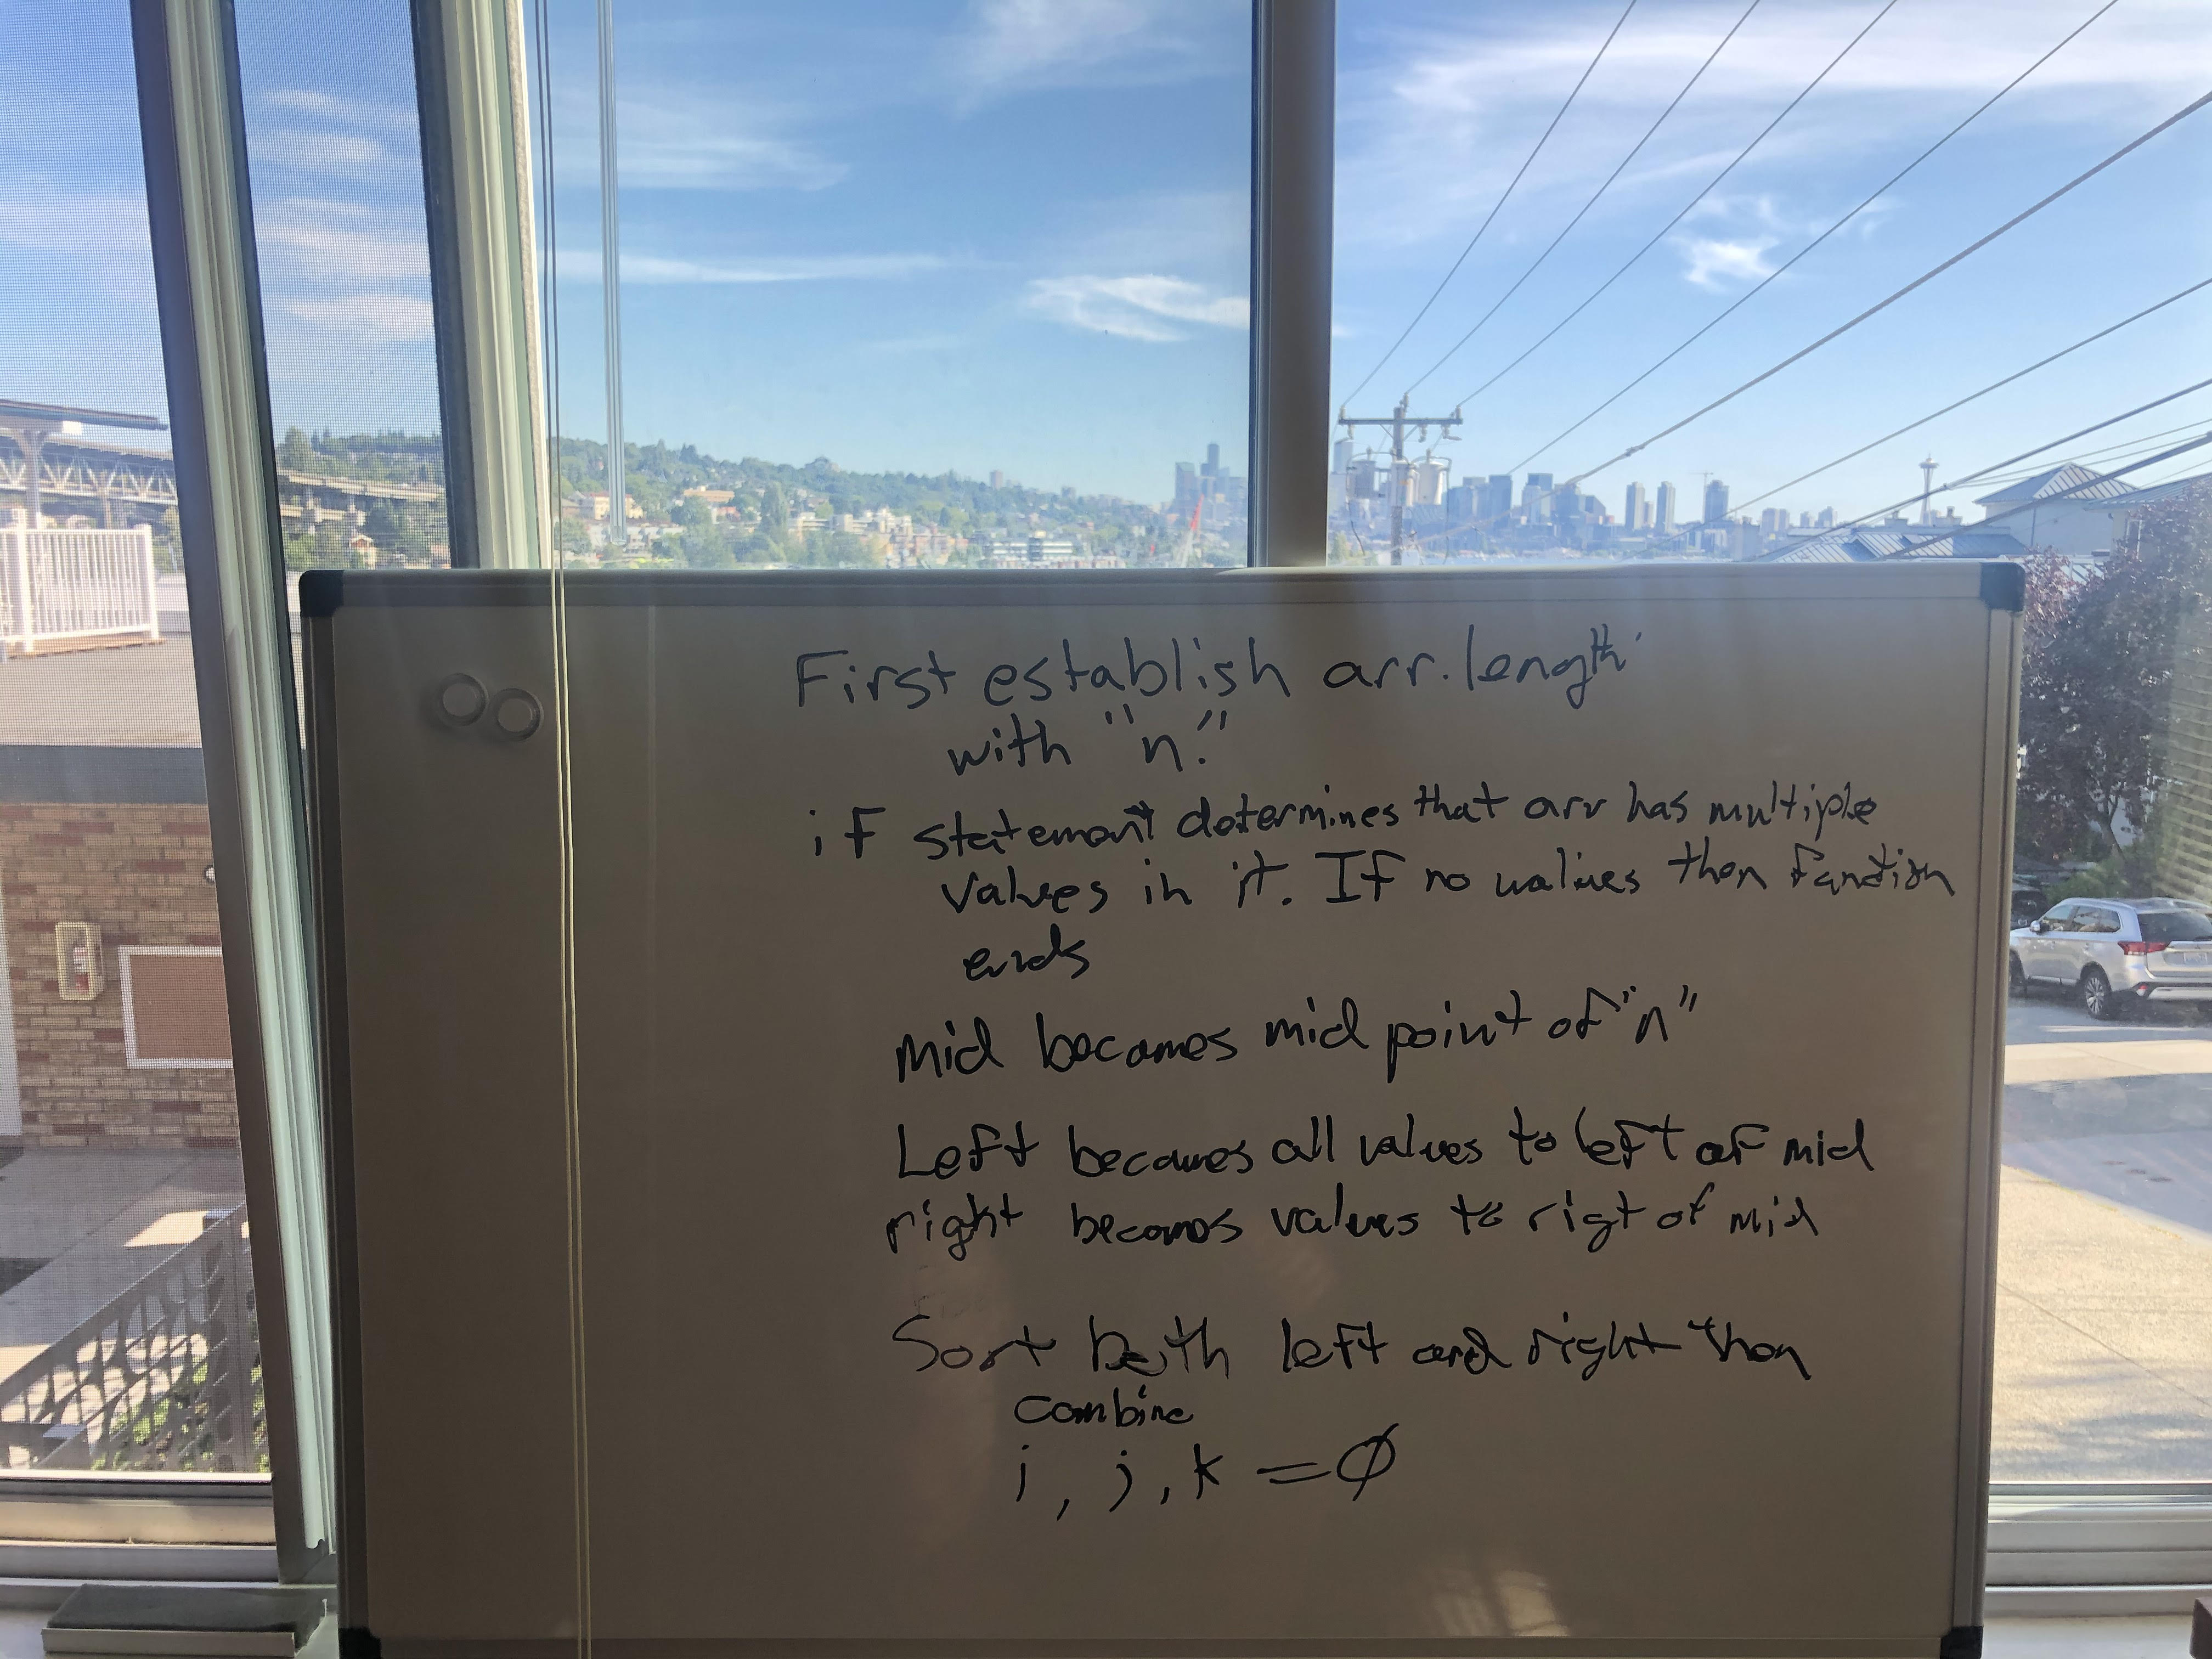 First establish arr.length
with "n."
if statement determines that arr has multiple
values in it. If no values then function
ends
mid becomes mid point of "n"
Left becomes all values to left of mid
right becomes values to rigt of mid
Sort both left and right then
combine
i, j, k = Ø